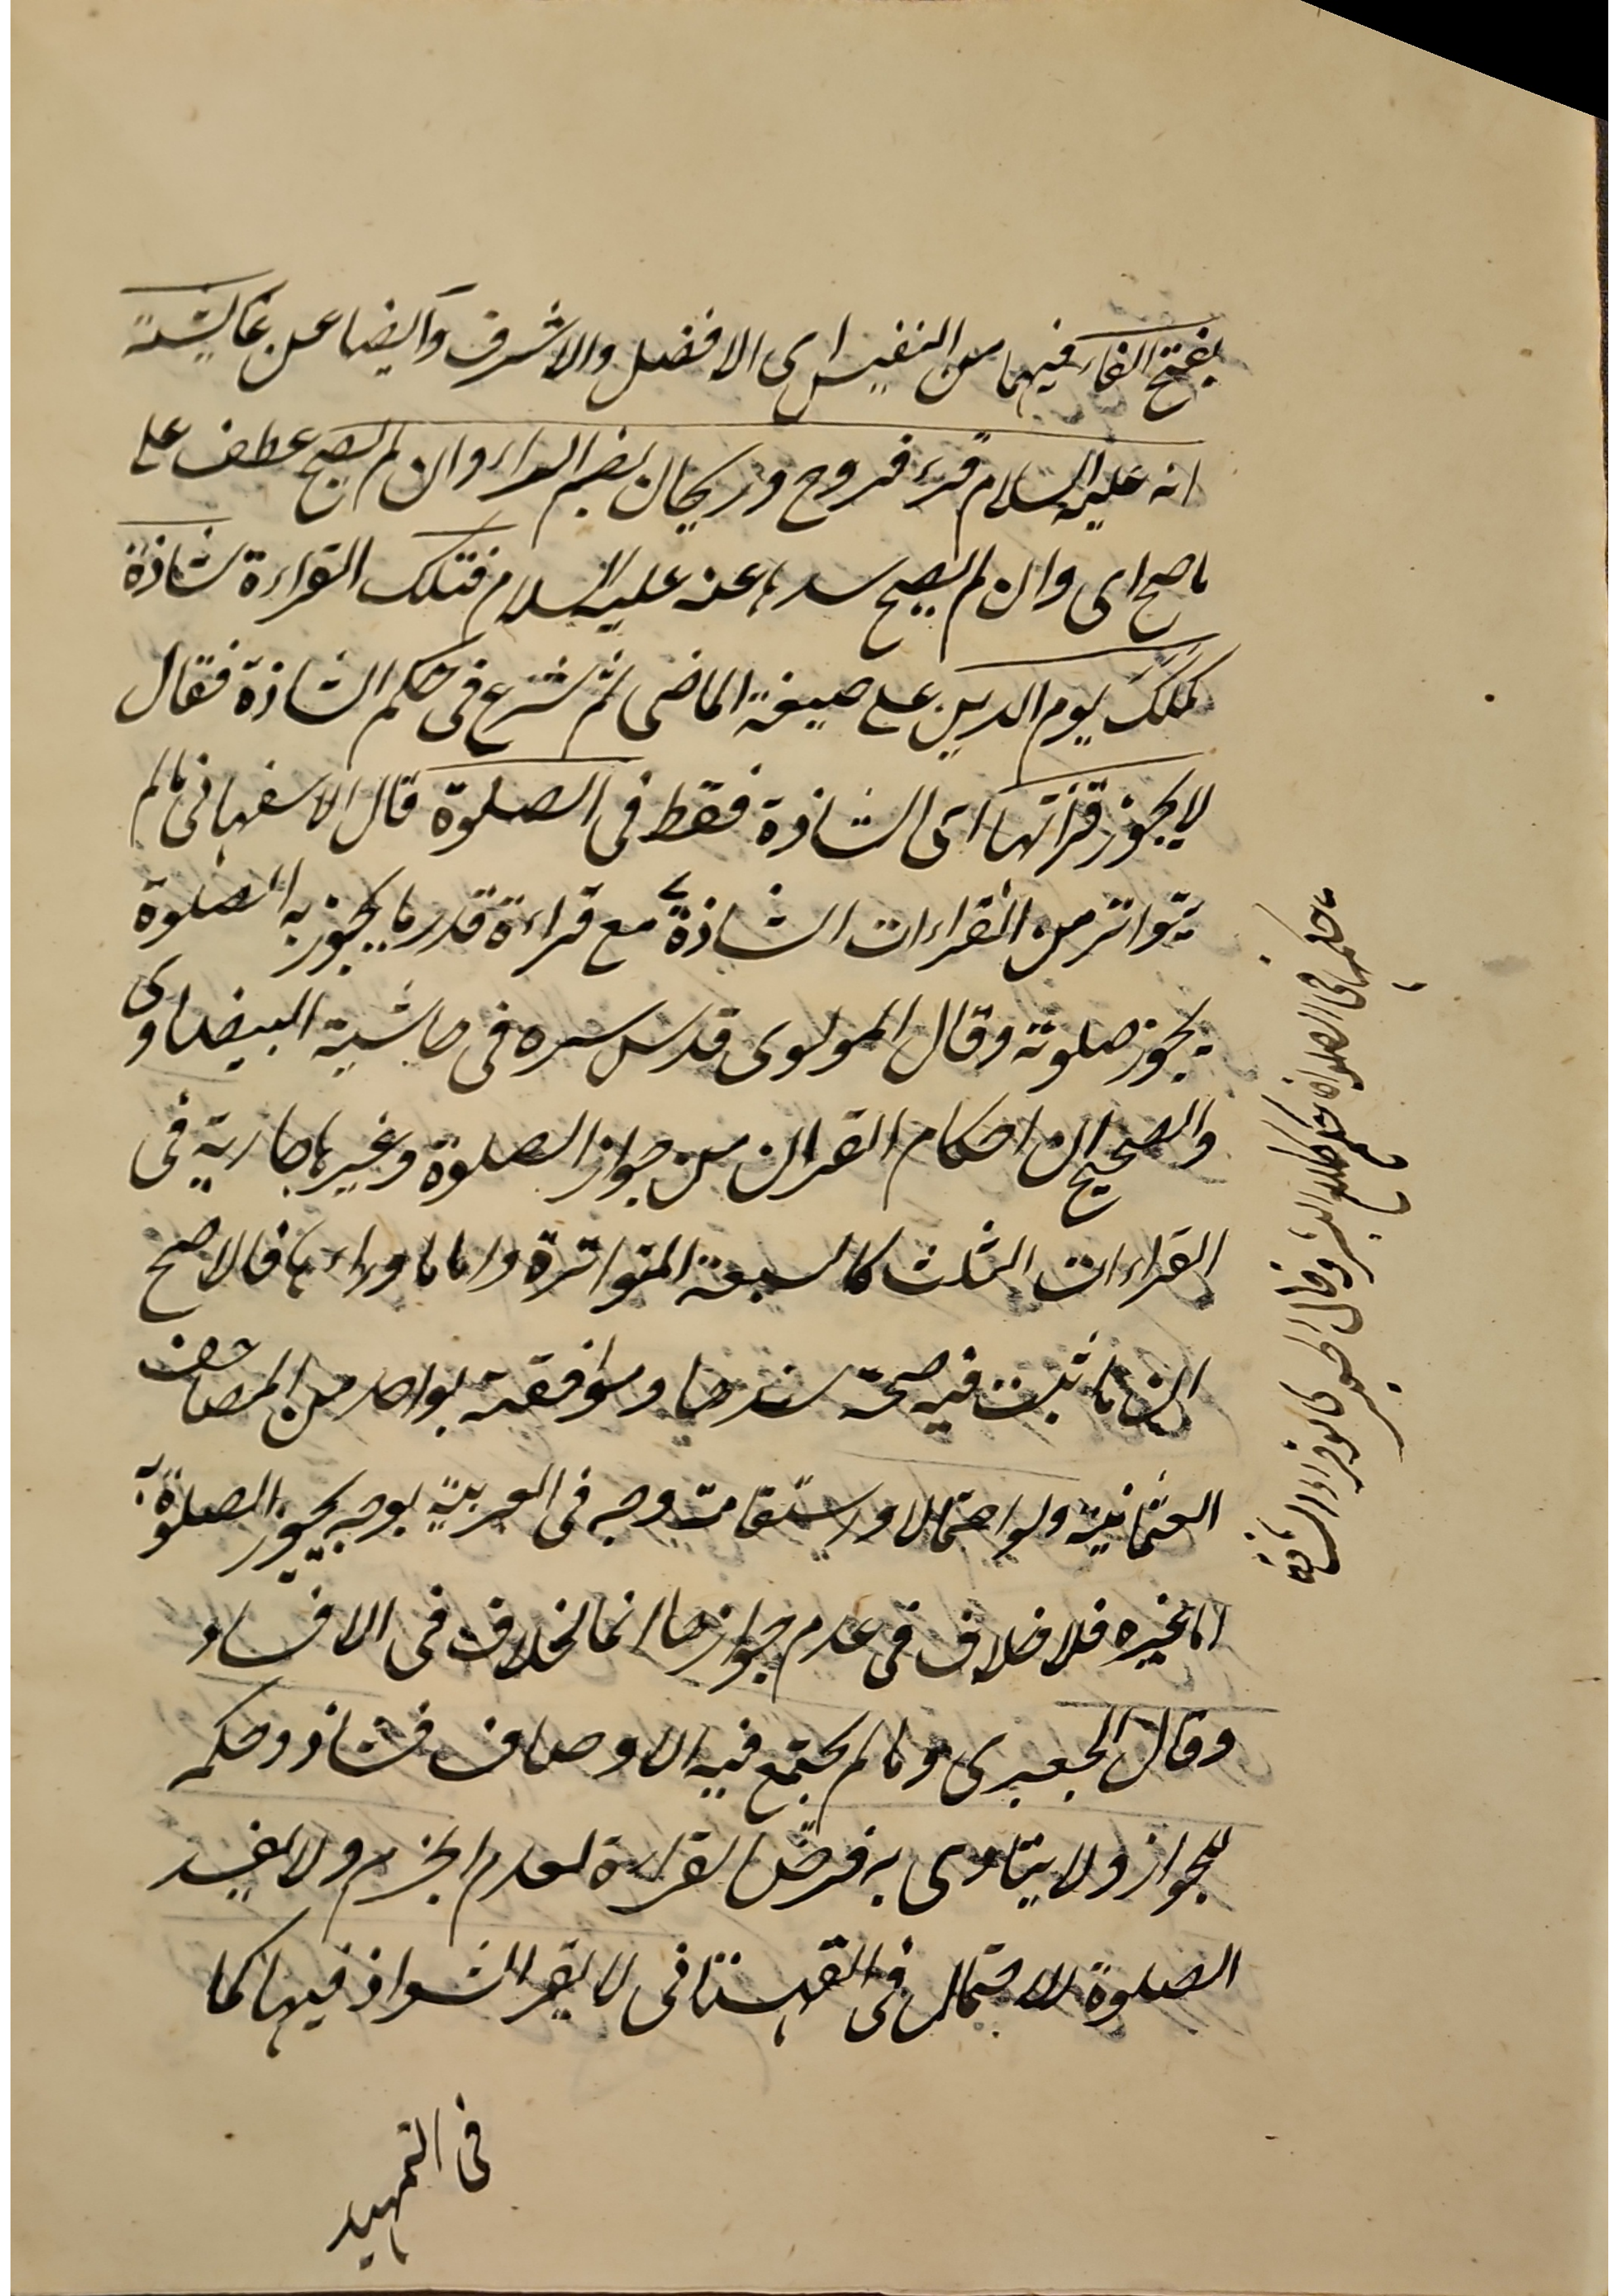 بفتح الفاء فيهما من النفيس اى الافضل والاشرف وايضا عن عائشة
انه عليه السلام قرء فروح وريحان بضم الراء وان لم يصح عطف على
ما صح اى وان لم يصح سندها عنه عليه السلام فتلك القراءة شاذة
كملك يوم الدين على صيغة الماضى ثم شرع فى حكم الشاذة فقال
لا يجوز قرأتها اى الشاذة فقط فى الصلوة قال الاسفهانى مالم
يتواتر من القراءات الشاذة مع قراءة قدر ما يجوز به الصلوة
يجوز صلوته وقال المولوى قدس سره فى حاشية البيضاوى
والصحيح ان احكام القران من جواز الصلوة وغيرها جارية فى
القراءات الثلث كالسبعة المتواترة واما ما وراءها فالاصح
ان ما ثبت فيه صحة سندها وموافقة بواحد من المصاحف
العثمانية ولو احتمالا واستقامت وجه فى العربية بوجه يجوز الصلوة به
اما بغيره فلا خلاف فى عدم جوازها انما الخلاف فى الافساد
وقال الجعبرى وما لم يجتمع فيه الاوصاف فشاذ وحكمه
للجواز ولا يتادى به فرض القراءة لعدم الجزم ولا يفسد
الصلوة لاحتمال فى القهستانى لا يقرأ الشواذ فيها كما
فى التمهيد
حكمها فى الصلوة حكم كلام البشر وقال
القراءة الشاذة